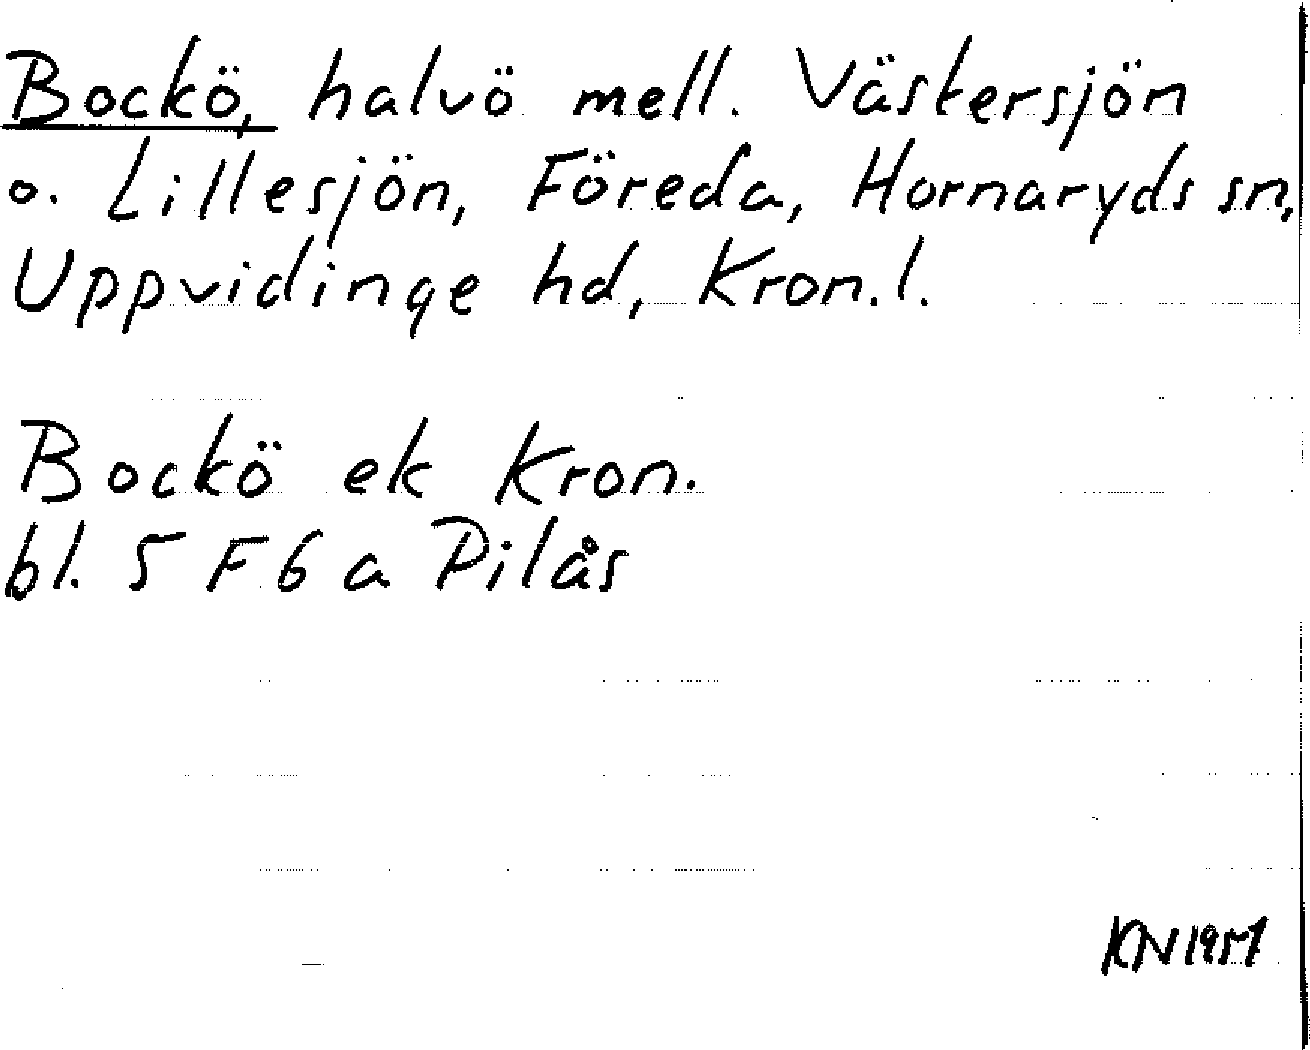 Bockö, halvö mell. Västersjön
o. Lillesjön, Föreda, Hornaryds sn,
Uppvidinge hd, Kron.l.
Bockö ek Kron.
bl. 5 F 6 a Pilås
KN 1951